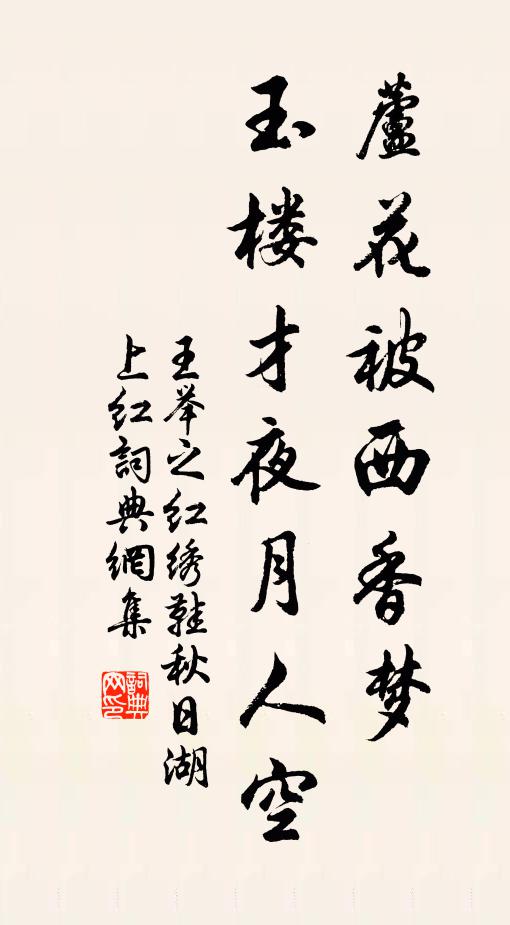 蘆花被西香梦
玉楼才夜月人空
王举之红绣鞋秋日湖
上红詞典網集
詞典
网印